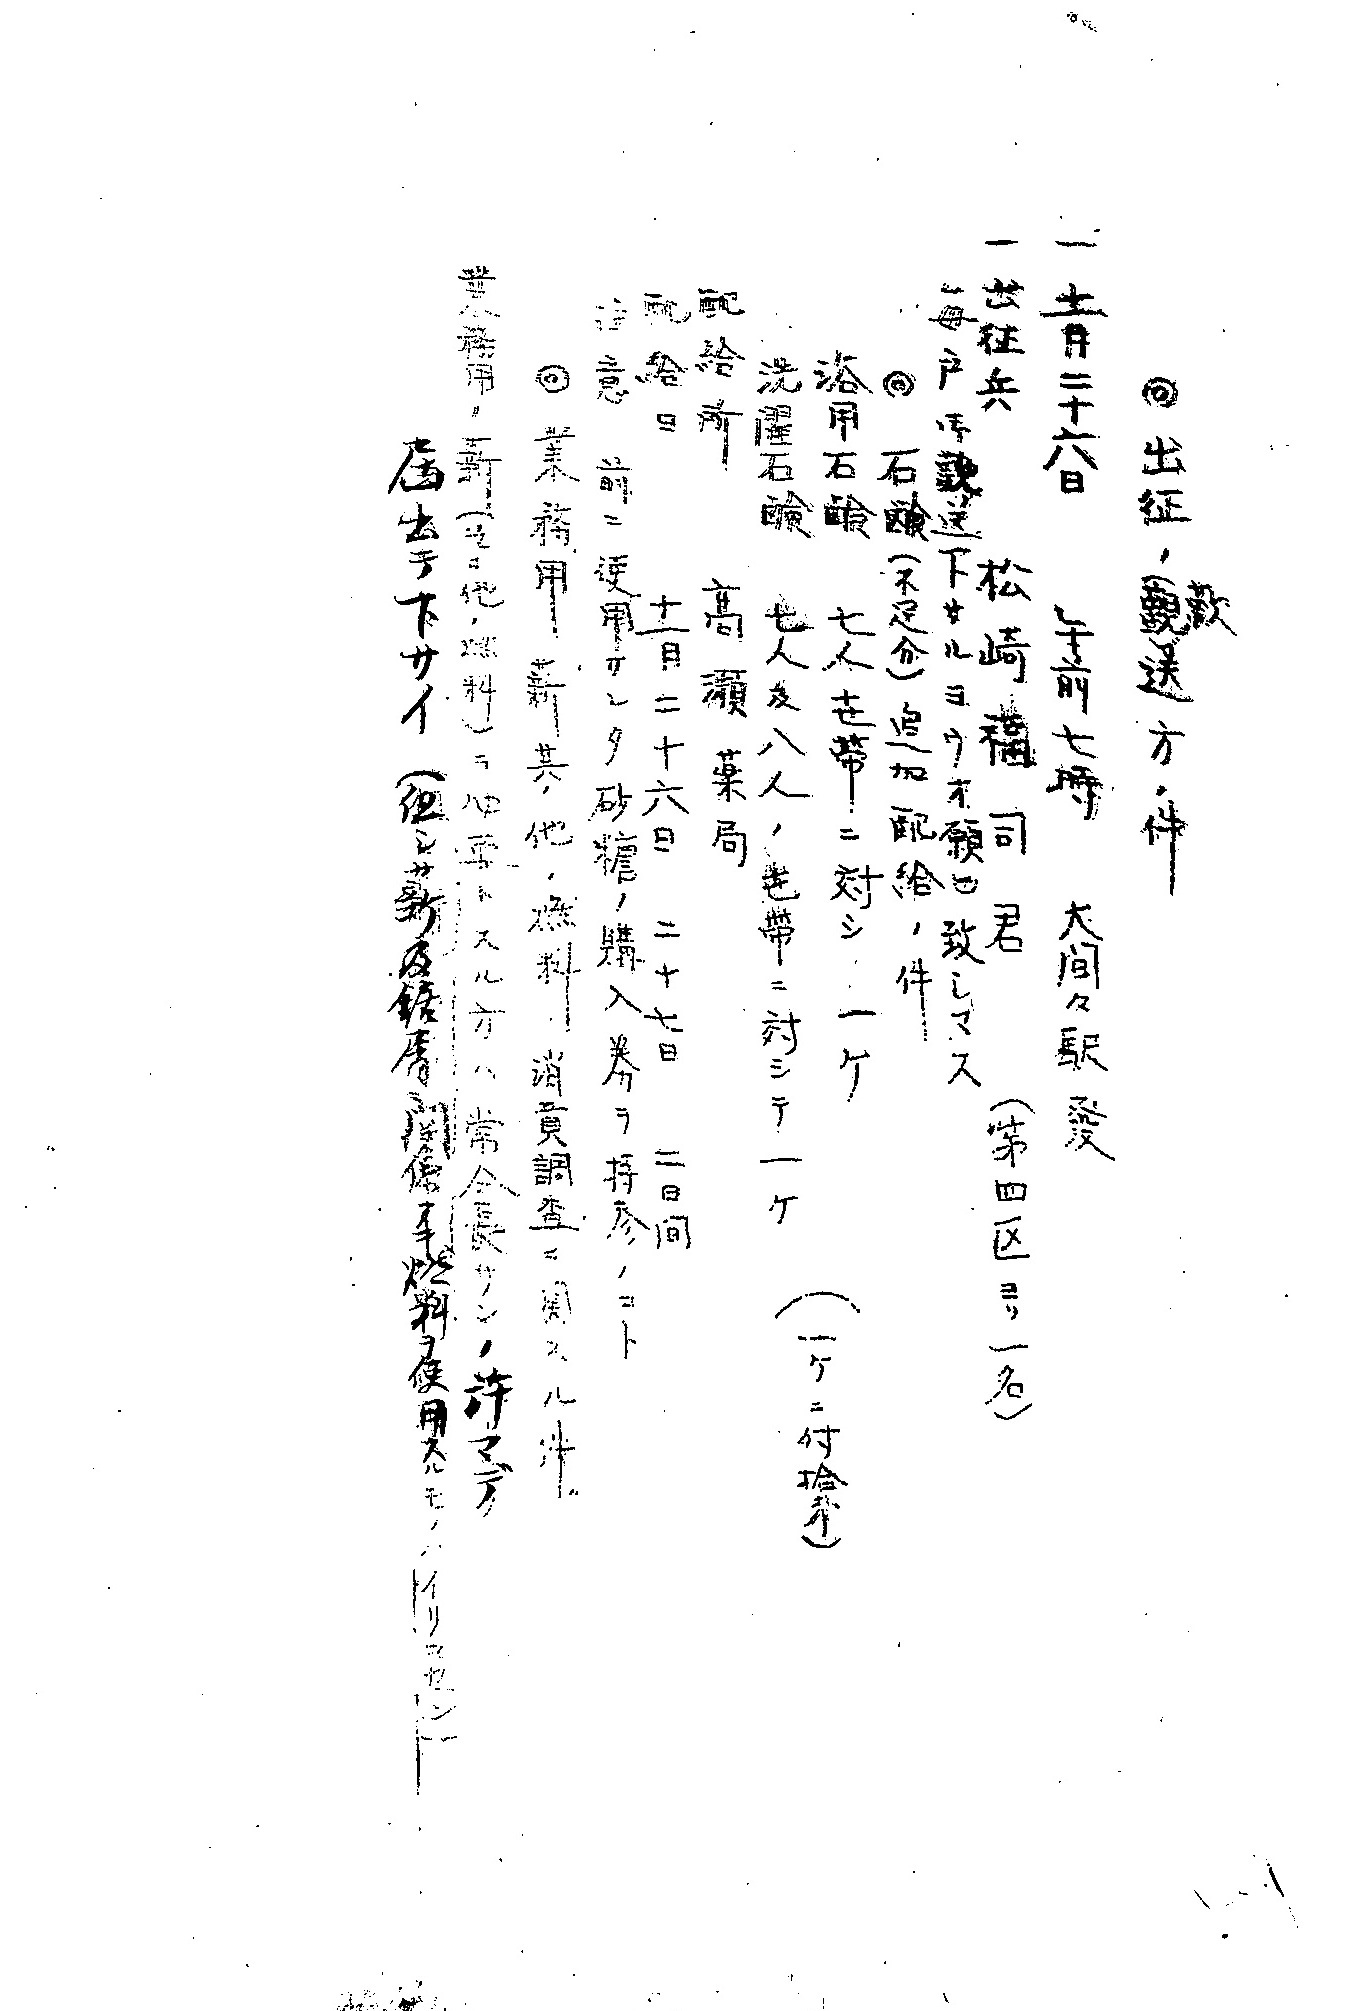 ◎出征ノ(観送方ノ件
歓
一 十一月二十六日 午前七時 大間々駅発
一 出征兵 松崎福司君 (第四区ヨリ一名)
毎戸御観送下サルヨウオ願ヒ致シマス
◎ 石鹸(不足分)追加配給ノ件
浴用石鹸 七人世帯ニ対シ 一ケ
洗濯石鹸 七人及八人ノ世帯ニ対シテ一ケ
(一ケニ付拾銭)
配給所 高瀬薬局
配給日 十一月二十六日 二十七日 二日間
注意 前ニ使用サレタ砂糖ノ購入券ヲ持参ノコト
◎ 業務用薪其ノ他ノ燃料消費調査ニ関スル件
業務用ノ薪(其ノ他ノ燃料)ヲ必要トスル方ハ常会長サンノ許マデ
届出テ下サイ(但シ薪及鋸屑関係ノ燃料ヲ使用スルモノハイリマセン)